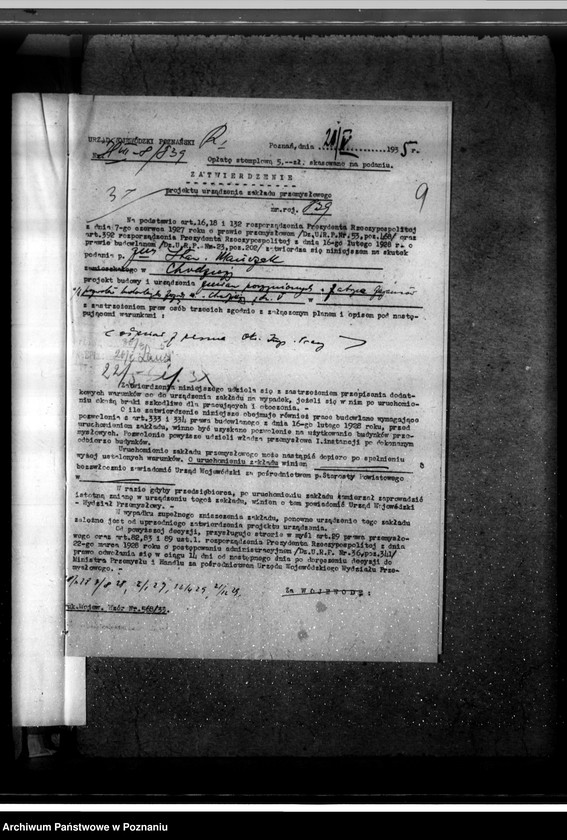 URZĄD WOJEWÓDZKI POZNAŃSKI
R.
Poznań, dnia 1935 r.
Nr. 839
Opłatę stemplową 5.--zł. skasowano na podaniu.
ZATWIERDZENIE
37
9
projektu urządzenia zakładu przemysłowego
nr.rej. 839
Na podstawie art.16,18 i 132 rozporządzenia Prezydenta Rzeczypospolitej
z dnia 7-go czerwca 1927 roku o prawie przemysłowem /Dz.U.R.P.Nr.53,poz.468/ oraz
art.392 rozporządzenia Prezydenta Rzeczypospolitej z dnia 16-go lutego 1928 r. o
prawie budowlanem /Dz.U.R.P. Nr.23,poz.202/ zatwierdza się niniejszem na skutek
podania p.
zamieszkałego w Chodzieży
projekt budowy i urządzenia
w
z zastrzeżeniem praw osób trzecich zgodnie z załączonym planem i opisem pod nastę-
pującemi warunkami :
Zatwierdzenia niniejszego udziela się z zastrzeżeniem przepisania dodat-
kowych warunków co do urządzenia zakładu na wypadek, jeżeli się w nim po uruchomie-
niu okażą braki szkodliwe dla pracujących i otoczenia. -
O ile zatwierdzenie niniejsze obejmuje również prace budowlane wymagające
pozwolenia z art.333 i 334 prawa budowlanego z dnia 16-go lutego 1928 roku, przed
uruchomieniem zakładu, winno być uzyskane pozwolenie na użytkowanie budynków prze-
mysłowych. Pozwolenie powyższe udzieli władza przemysłowa I.instancji po dokonanym
odbiorze budynków.
Uruchomienie zakładu przemysłowego może nastąpić dopiero po spełnieniu
wyżej ustalonych warunków. O uruchomieniu zakładu winien
bezzwłocznie zawiadomić Urząd Wojewódzki za pośrednictwem p.Starosty Powiatowego
w
W razie gdyby przedsiębiorca, po uruchomieniu zakładu zamierzał zaprowadzić
istotną zmianę w urządzeniu tegoż zakładu, winien o tem powiadomić Urząd Wojewódzki
- Wydział Przemysłowy. -
W wypadku zupełnego zniszczenia zakładu, ponowne urządzenie tego zakładu
zależne jest od uprzedniego zatwierdzenia projektu urządzenia. -
Od powyższej decyzji, przysługuje stronie w myśl art.29 prawa przemysło-
wego oraz art.82,83 i 89 ust.1. rozporządzenia Prezydenta Rzeczypospolitej z dnia
22-go marca 1928 roku o postępowaniu administracyjnem /Dz.U.R.P. Nr.36,poz.341/
prawo odwołania się w ciągu 14 dni od następnego dnia po doręczeniu decyzji do
Ministra Przemysłu i Handlu za pośrednictwem Urzędu Wojewódzkiego Wydziału Prze-
mysłowego. -
Za WOJEWODĘ:
uk.Wojew. Wzór Nr.568/33.
Archiwum Państwowe w Poznaniu